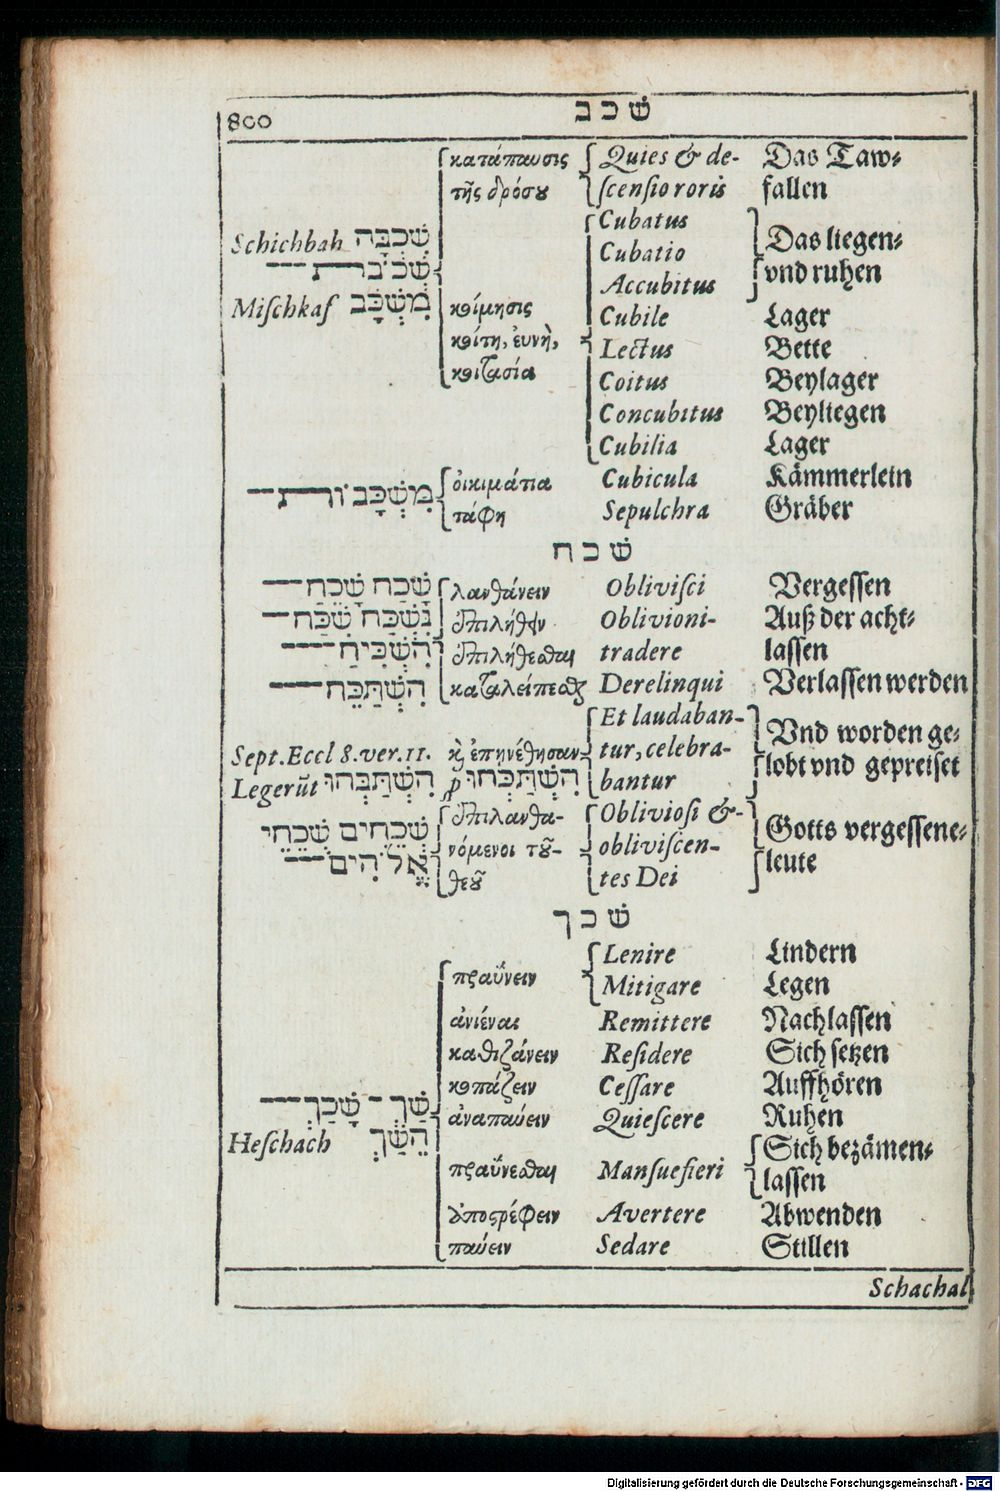 800 שׁכב
κατάπαυσις Quies & de- Das Taw-
τῆς δρόσου ſcenſio roris fallen
Cubatus
Schichbah שִׁכְבָּה Cubatio Das liegen-
שְׁכֹברת Accubitus vnd ruhen
Miſchkaf מִשְׁכָּב κοίμησις Cubile Lager
κοίτη, ἐυνὴ, Lectus Bette
κοιτασία Coitus Beylager
Concubitus Beyliegen
Cubilia Lager
οἰκιμάτια Cubicula Kämmerlein
מִשְׁכָּבורת τάφη Sepulchra Gräber
שׁכח
שָׁכַח שָׁכֵחַ λανθάνειν Obliviſci Vergeſſen
נִשְׁכַּח שִׁכַּח Oblivioni- Auß der acht-
הִשְׁכִּיחַ ἐπιλήθεσθαι tradere laſſen
הִשְׁתַּכֵּח καταλείπεσθαι Derelinqui Verlaſſen werden
Et laudaban- Vnd worden ge-
Sept. Eccl 8. ver. 11. κὶ ἐπηνέθησαν tur, celebra- lobt vnd gepreiſet
Legerũt הִשְׁתַּבְּחוּ p הִשְׁתַּכְּחוּ bantur
שְׁכֵחִים שְׁכֵחֵי ἐπιλανθα- Oblivioſi &- Gotts vergeſſene-
אֱלֹהִים νόμενοι τοῦ- obliviſcen- leute
θεοῦ tes Dei
שׁכך
πραΰνειν Lenire Lindern
Mitigare Legen
ἀνιέναι Remittere Nachlaſſen
καθιζάνειν Reſidere Sich ſetzen
κοπάζειν Ceſſare Auffhören
שַׁךְ - שָׁכַךְ ἀναπαύειν Quieſcere Ruhen
Heſchach הֵשַׁךְ Sich bezämen-
πραΰνεσθαι Manſuefieri laſſen
ἀποστρέφειν Avertere Abwenden
παύειν Sedare Stillen
Schachal
Digitalisierung gefördert durch die Deutsche Forschungsgemeinschaft - DFG